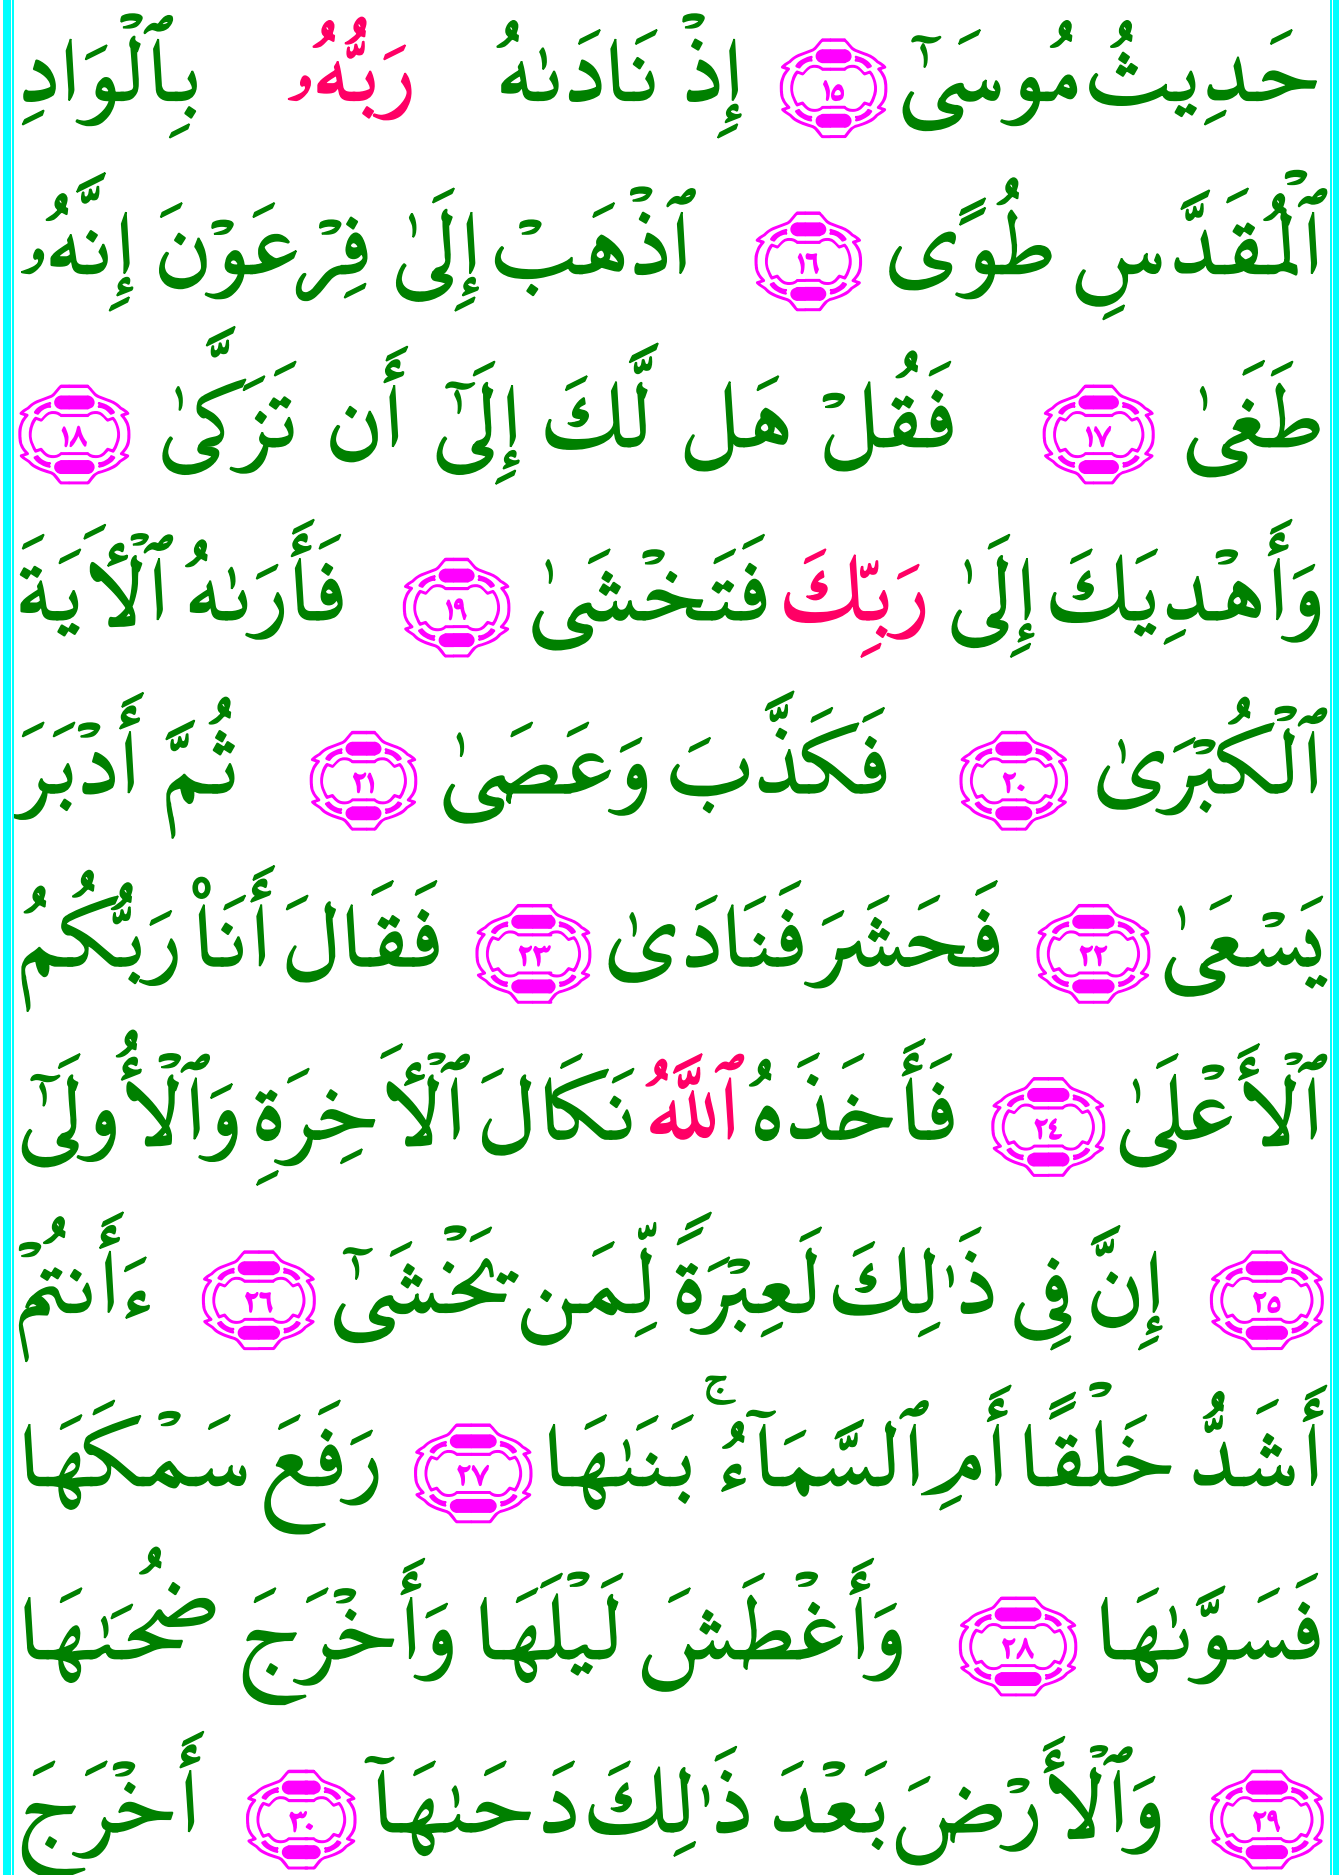 حَدِيثُ مُوسَىٰٓ ١٥ إِذْ نَادَىٰهُ رَبُّهُۥ بِٱلْوَادِ
ٱلْمُقَدَّسِ طُوًى ١٦ ٱذْهَبْ إِلَىٰ فِرْعَوْنَ إِنَّهُۥ
طَغَىٰ ١٧ فَقُلْ هَل لَّكَ إِلَىٰٓ أَن تَزَكَّىٰ ١٨
وَأَهْدِيَكَ إِلَىٰ رَبِّكَ فَتَخْشَىٰ ١٩ فَأَرَىٰهُ ٱلْأَيَةَ
ٱلْكُبْرَىٰ ٢٠ فَكَذَّبَ وَعَصَىٰ ٢١ ثُمَّ أَدْبَرَ
يَسْعَىٰ ٢٢ فَحَشَرَ فَنَادَىٰ ٢٣ فَقَالَ أَنَا۠ رَبُّكُمُ
ٱلْأَعْلَىٰ ٢٤ فَأَخَذَهُ ٱللَّهُ نَكَالَ ٱلْأَخِرَةِ وَٱلْأُولَىٰٓ
٢٥ إِنَّ فِى ذَٰلِكَ لَعِبْرَةً لِّمَن يَخْشَىٰٓ ٢٦ ءَأَنتُمْ
أَشَدُّ خَلْقًا أَمِ ٱلسَّمَآءُ ۚ بَنَىٰهَا ٢٧ رَفَعَ سَمْكَهَا
فَسَوَّىٰهَا ٢٨ وَأَغْطَشَ لَيْلَهَا وَأَخْرَجَ ضُحَىٰهَا
٢٩ وَٱلْأَرْضَ بَعْدَ ذَٰلِكَ دَحَىٰهَآ ٣٠ أَخْرَجَ